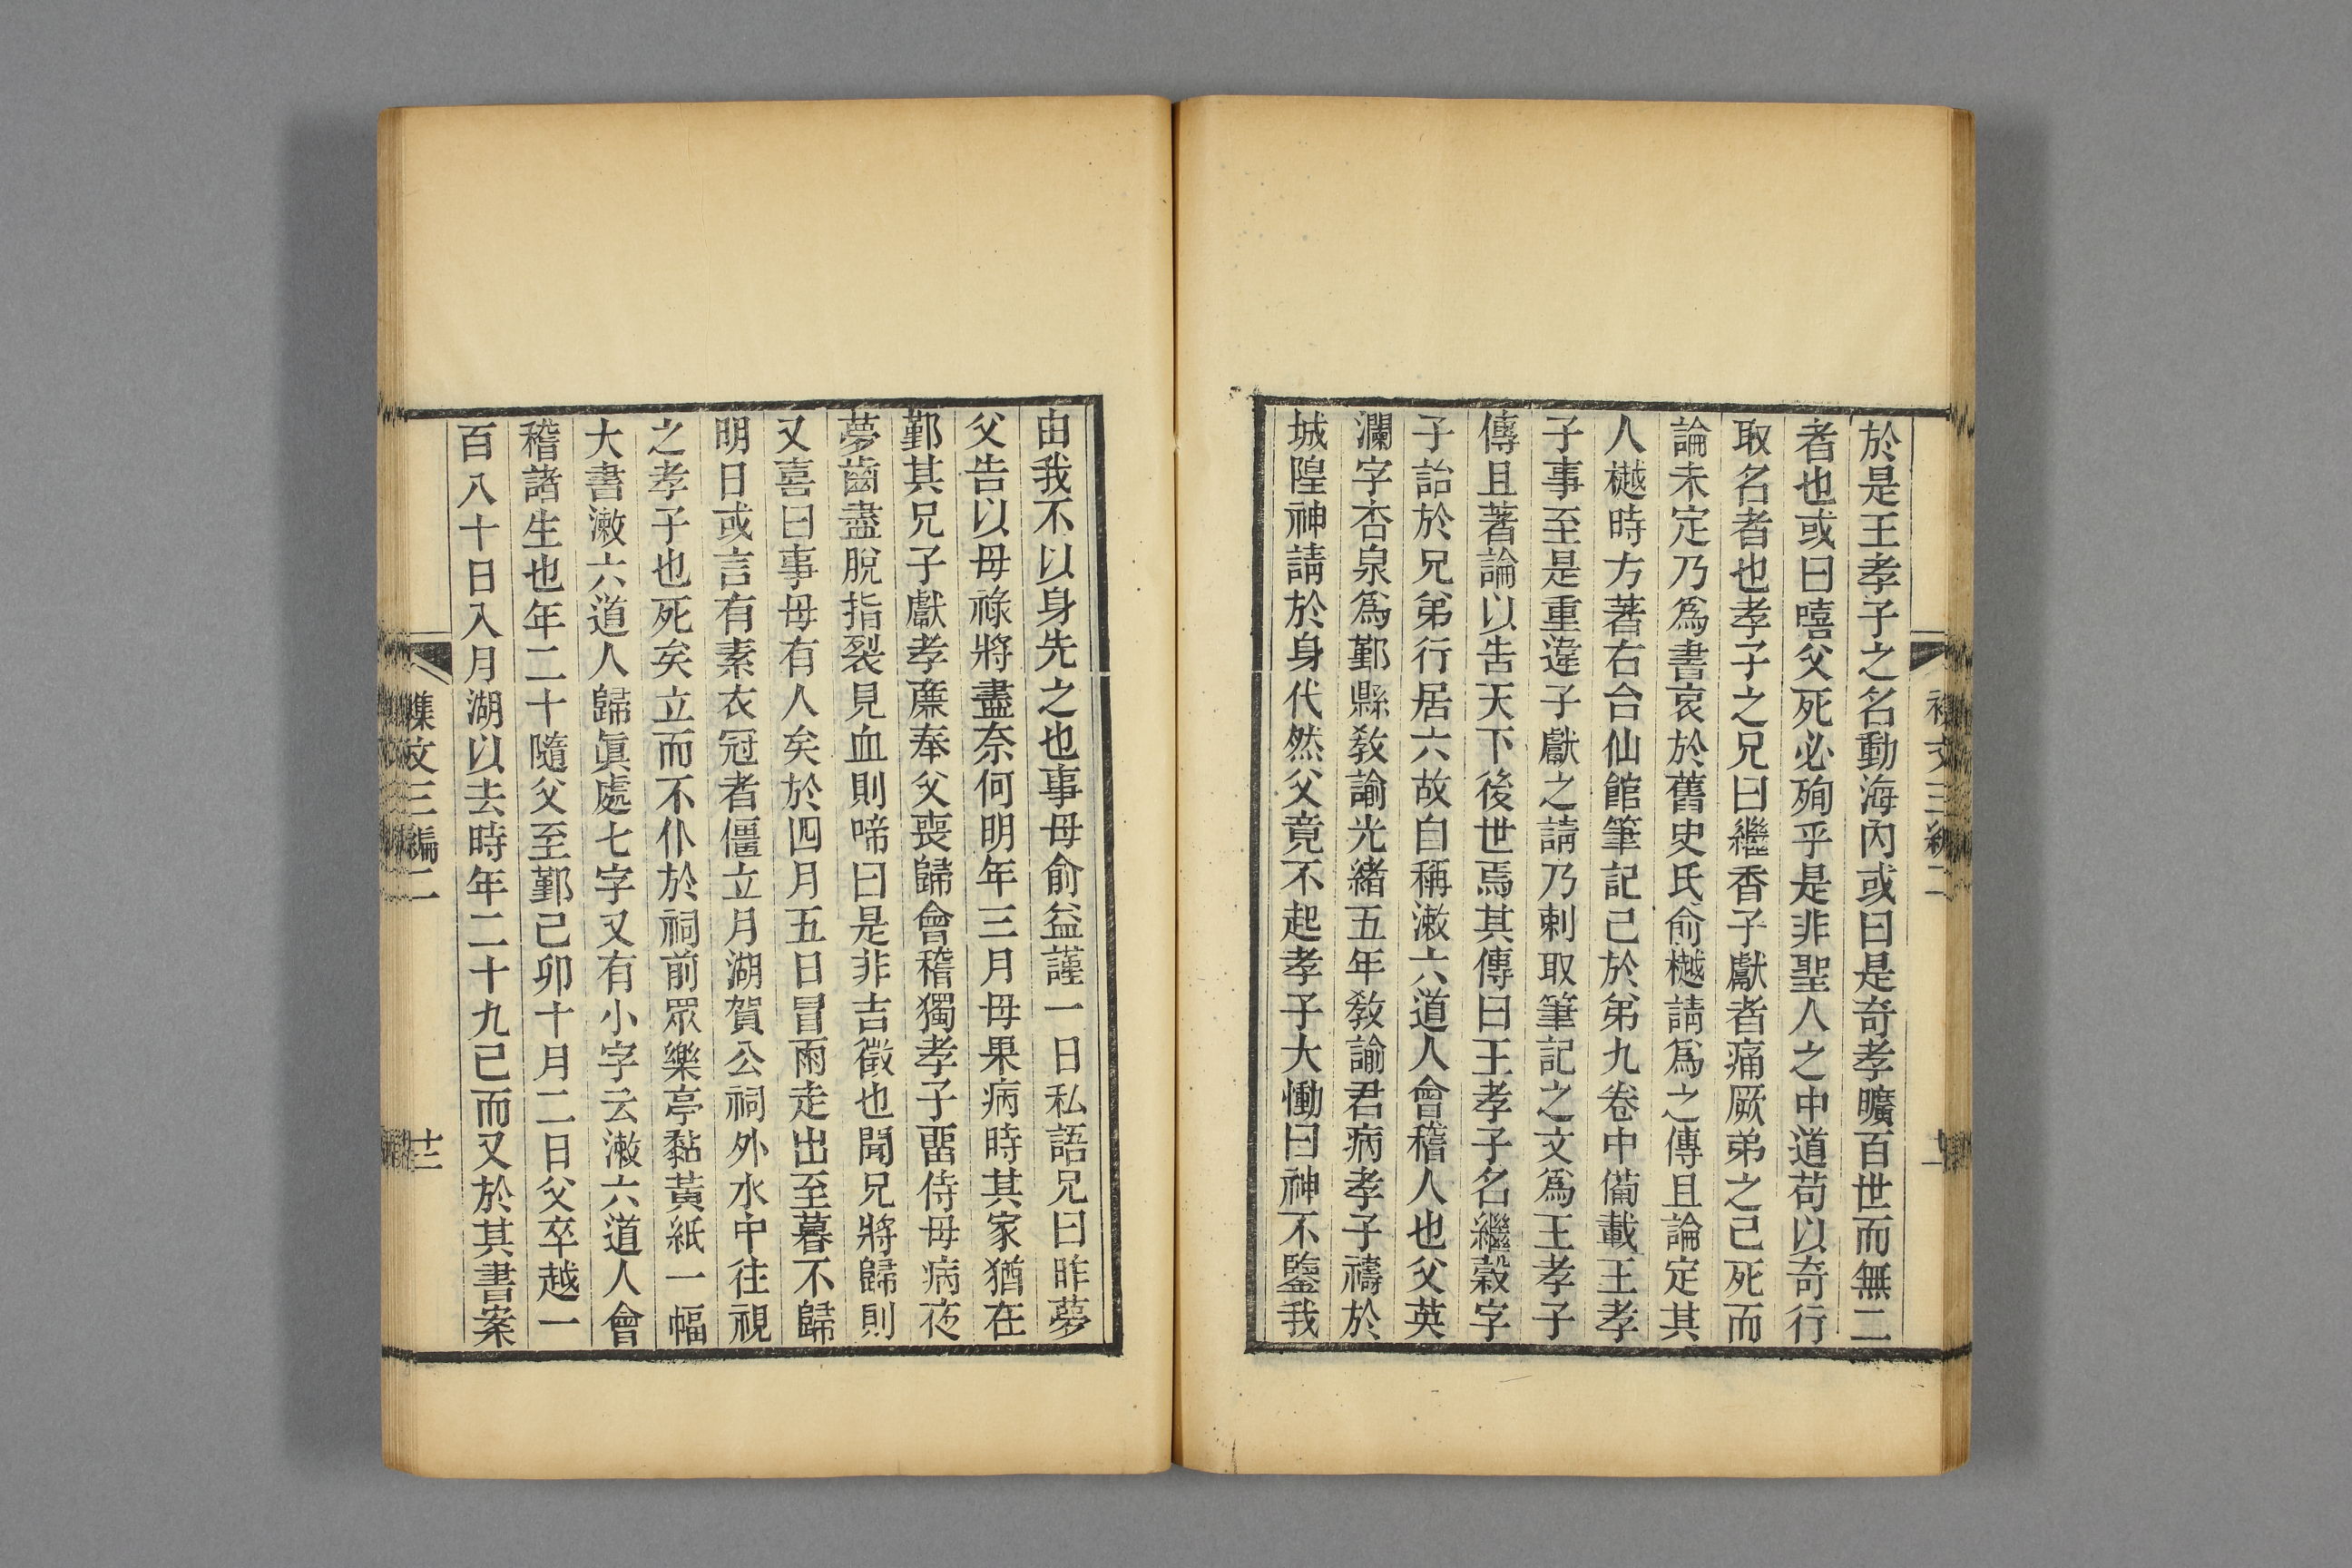 於是王孝子之名動海內或曰是奇孝曠百世而無二
者也或曰嘻父死必殉乎是非聖人之中道苟以奇行
取名者也孝子之兄曰繼香子獻者痛厥弟之己死而
論未定乃爲書哀於舊史氏俞樾請爲之傳且論定其
人樾時方著右台仙館筆記己於弟九卷中備載王孝
子事至是重違子獻之請乃剌取筆記之文爲王孝子
傳且著論以告天下後世焉其傳曰王孝子名繼穀字
子詒於兄弟行居六故自稱漱六道人會稽人也父英
瀾字杏泉爲鄞縣敎諭光緒五年敎諭君病孝子禱於
城隍神請於身代然父竟不起孝子大慟曰神不鑒我
由我不以身先之也事母俞益謹一日私語兄曰昨夢
父告以母祿將盡奈何明年三月母果病時其家猶在
鄞其兄子獻孝廉奉父喪歸會稽獨孝子畱侍母病夜
夢齒盡脫指裂見血則啼曰是非吉徵也聞兄將歸則
又喜曰事母有人矣於四月五日冒雨走出至暮不歸
明日或言有素衣冠者僵立月湖賀公祠外水中往視
之孝子也死矣立而不仆於祠前眾樂亭黏黃紙一幅
大書漱六道人歸眞處七字又有小字云漱六道人會
稽諸生也年二十隨父至鄞己卯十月二日父卒越一
百八十日入月湖以去時年二十九己而又於其書案
襍文三編二
十二